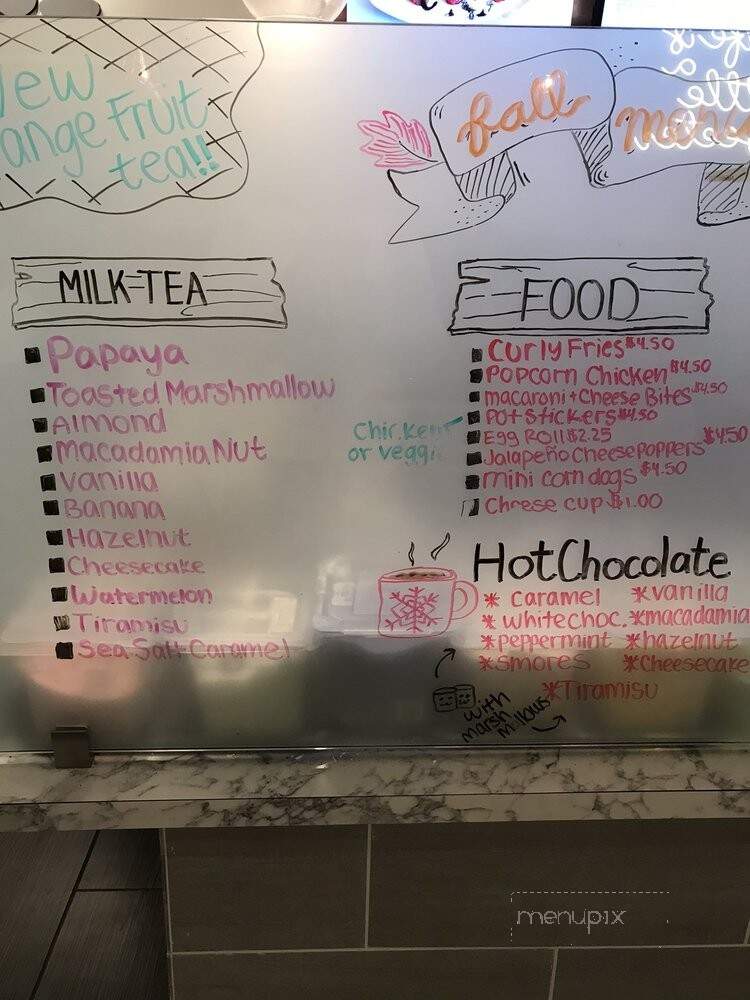 New
ange Fruit
tea!!
fall
MILK-TEA
Papaya
Toasted Marshmallow
Almond
Macadamia Nut
Vanilla
Banana
Hazelnut
Cheesecake
Watermelon
Tiramisu
Sea Salt Caramel
FOOD
Curly Fries $4.50
Popcorn Chicken $4.50
macaroni + Cheese Bites $4.50
Potstickers $4.50
Chicken
or veggie
Egg Roll $2.25
Jalapeño Cheese Poppers $4.50
mini corn dogs $4.50
Cheese cup $1.00
Hot Chocolate
* caramel * vanilla
* white choc. * macadamia
* peppermint * hazelnut
* smores * Cheesecake
* Tiramisu
with
marsh
mallows
menupix